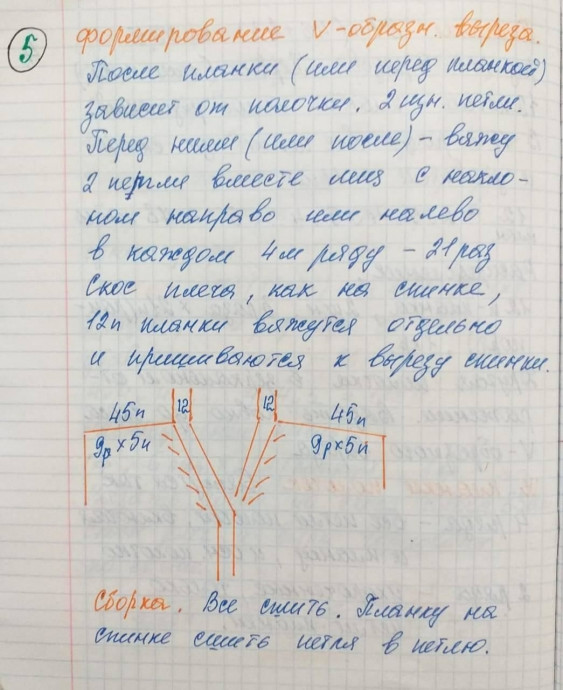 5
Формирование V-образн. выреза.
После планки (или перед планкой)
зависит от полочки. 2 изн. петли.
Перед ними (или после) - вяжу
2 петли вместе лиц с накло-
ном направо или налево
в каждом 4м ряду - 21 раз
Скос плеча, как на спинке,
12п планки вяжутся отдельно
и пришиваются к вырезу спинки.
45п 12 12 45п
9р х 5п 9р х 5п
Сборка. Все сшить. Планку на
спинке сшить петля в петлю.